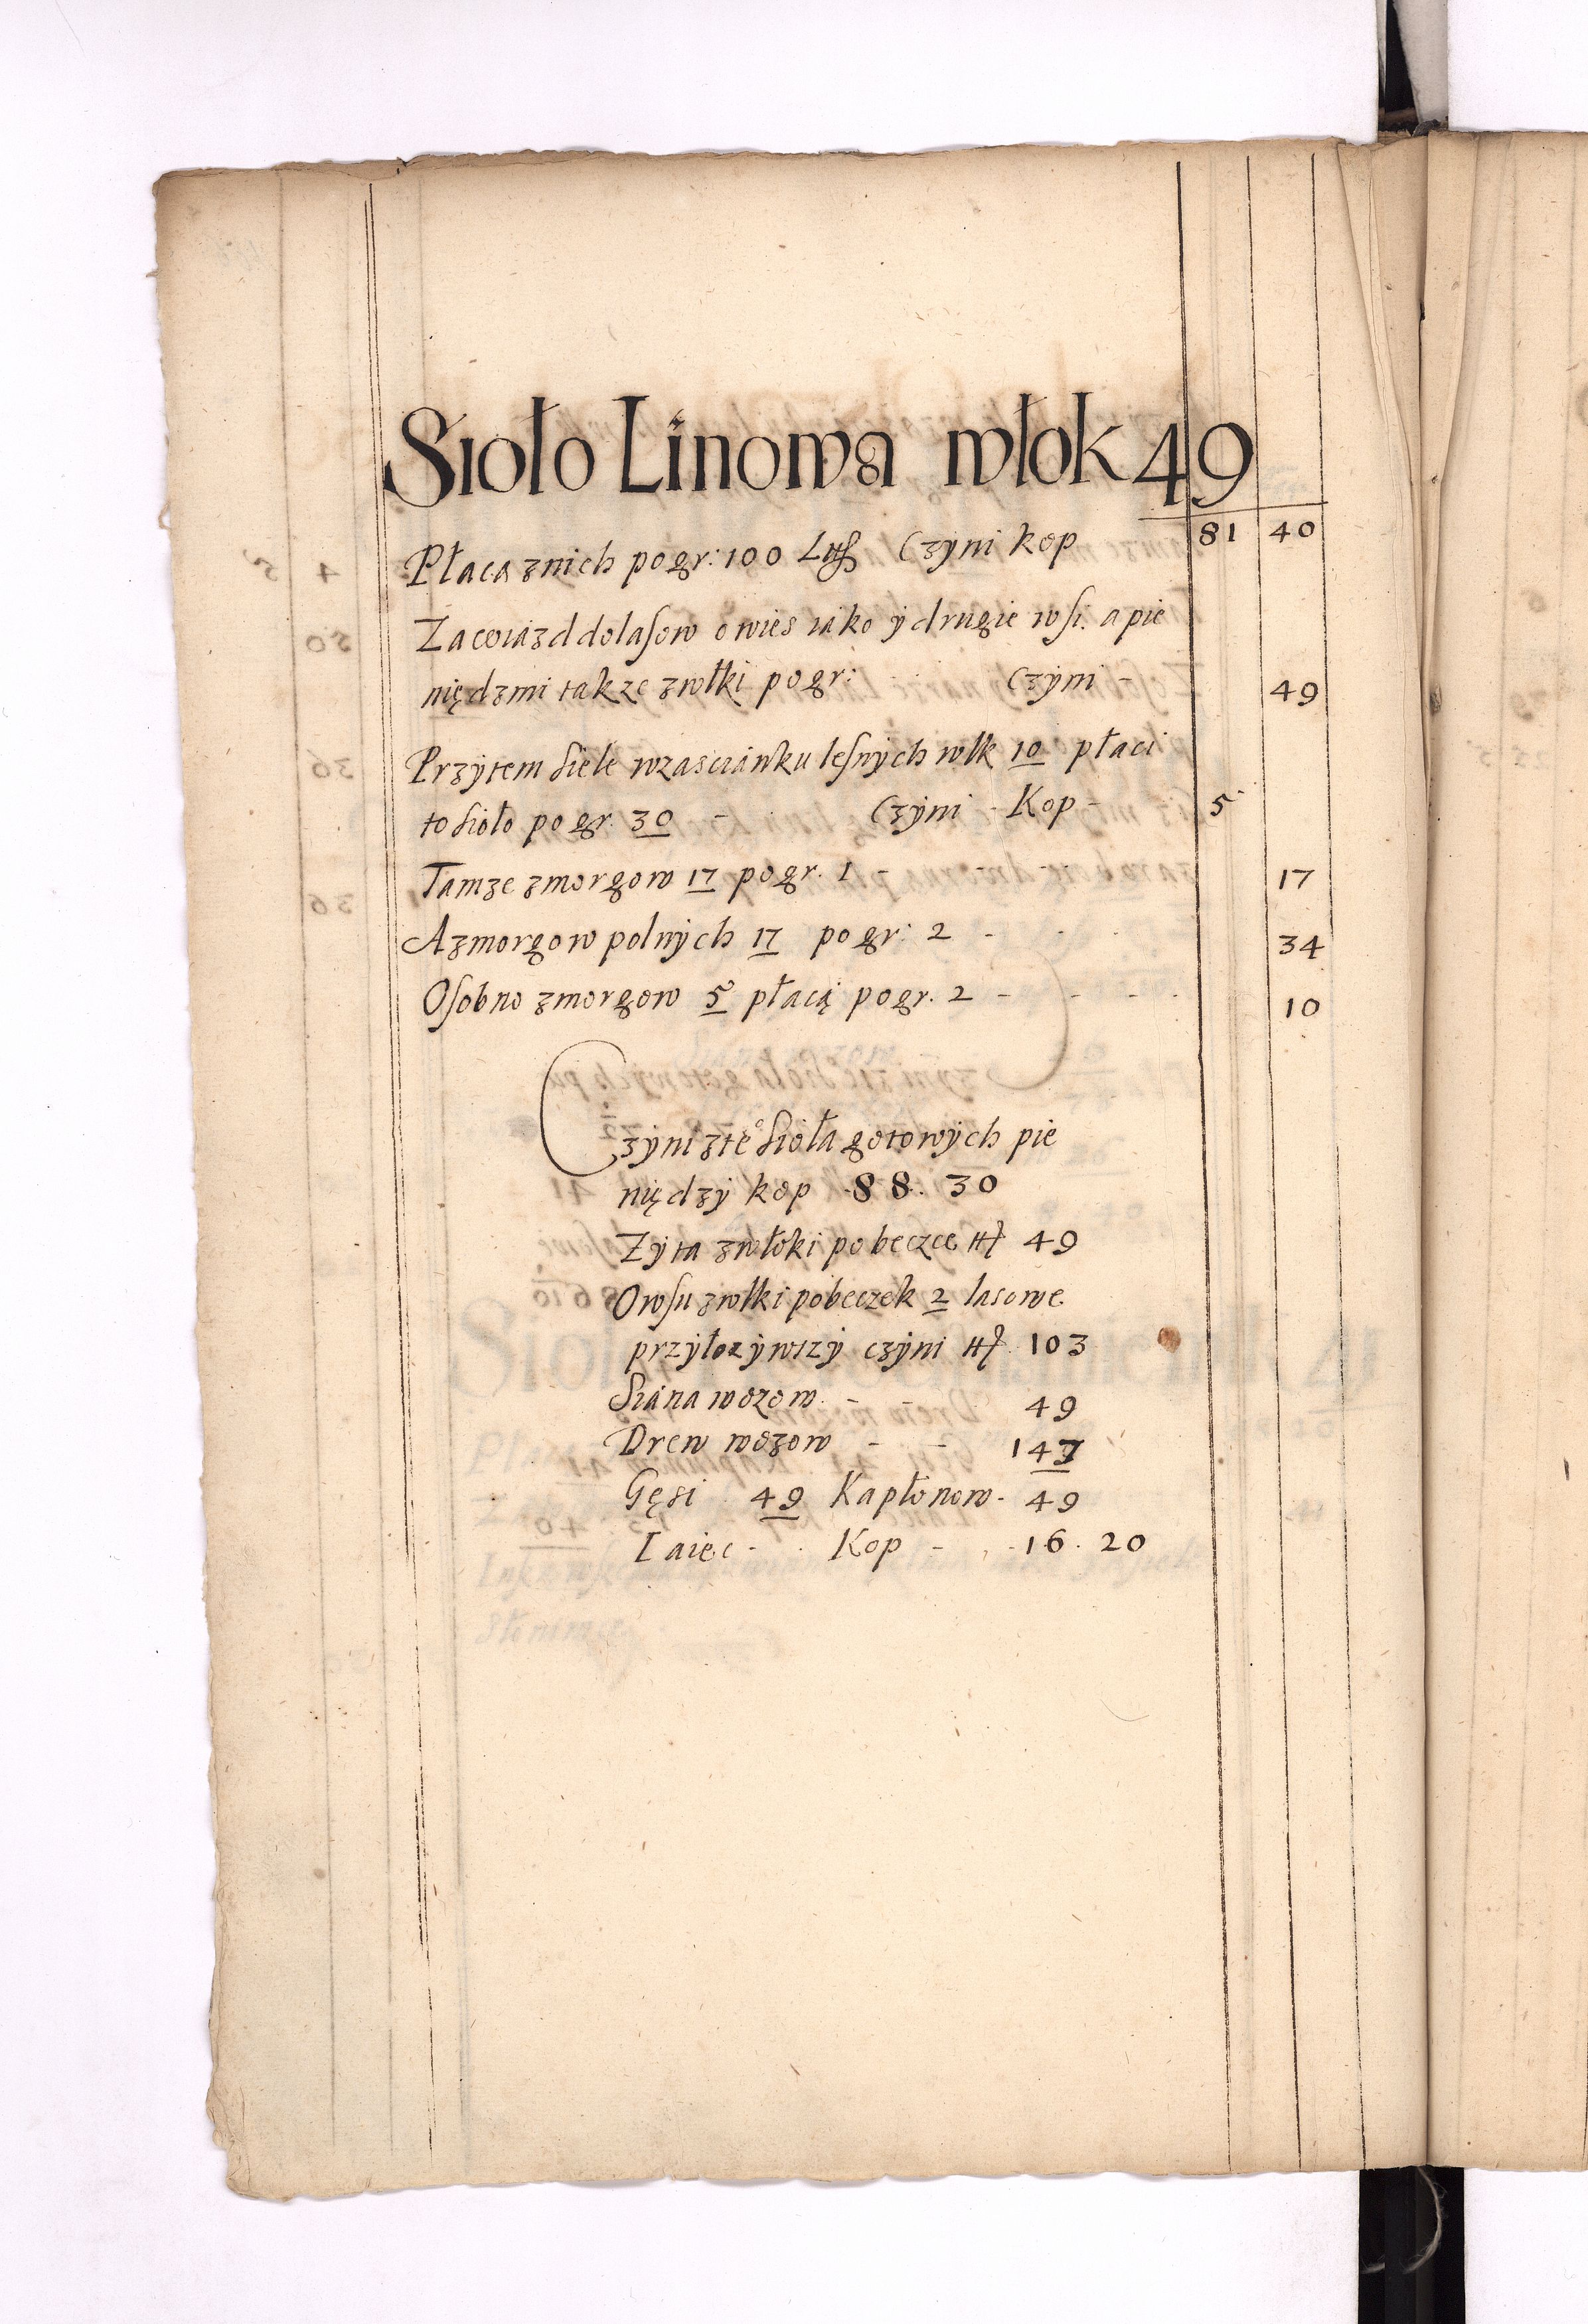 Sioło Linowa włok 49
Płacą znich po gr: 100 Lits Czyni kop 81 40
Za cowiazd do lasow owies iako ÿ drugie wsi. a pie
niędzmi takze zwłki po gr: Czÿni - 49
Przÿtem siele wzasciánku lesnÿch wlk 10 płaci
to sioło po gr. 30 - Czÿni - Kop - 5
Tamze zmorgow 17 po gr. 1 - - - - 17
A zmorgow polnÿch 17 po gr: 2 - - - 34
Osobno zmorgow 5 płacą po gr. 2 - - - - 10
Czÿni zte° sioła gotowÿch pie
niędzÿ kop 88. 30
Zÿta zwłoki po beczce 49
Owsu zwłki po beczek 2 lasowe
przÿłozÿwszÿ czÿni 103
Siana wozow. - - 49
Drew wozow - - 147
Gęsi 49 Kapłonow - 49
Iaiec - Kop - 16. 20